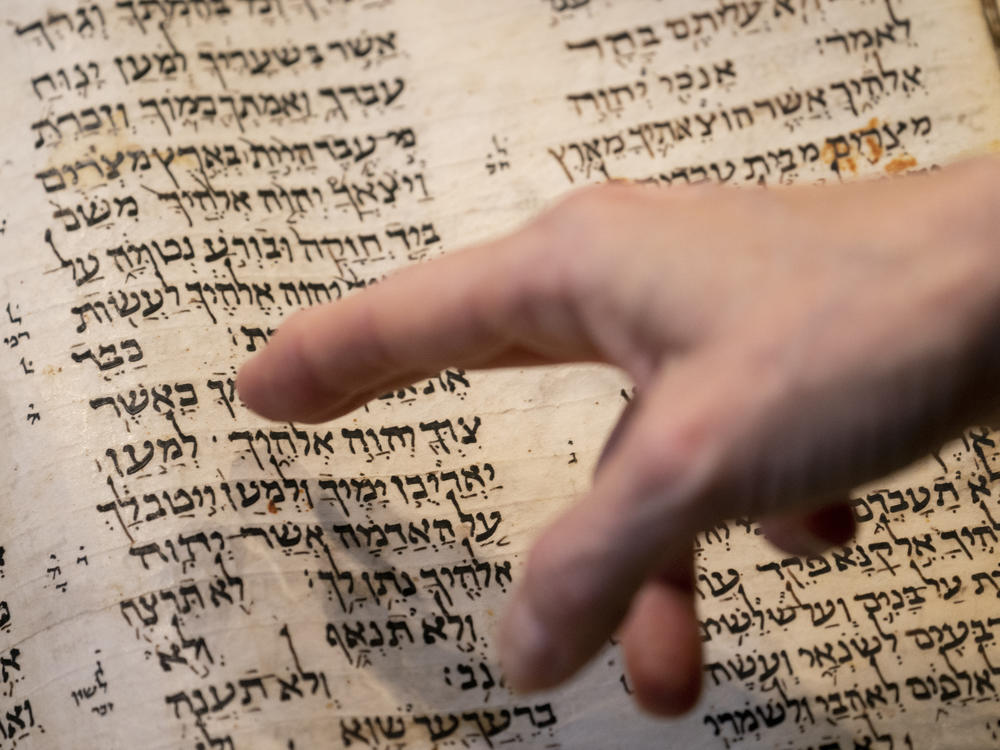 ולא עליתם בהר
לאמר:
אנכי יהוה
אלהיך אשר הוצאתיך מארץ
מצרים מבית עבדים
לא תעבדם
אל קנא פקד עון
על בנים ועל שלשים
רבעים לשנאי ועשה
לאלפים לאהבי ולשמרי
בהמתך וגרך
אשר בשעריך למען ינוח
עבדך ואמתך כמוך וזכרת
כי עבד היית בארץ מצרים
ויצאך יהוה אלהיך משם
ביד חזקה ובזרע נטויה על
יהוה אלהיך לעשות
כבד
כאשר
צוך יהוה אלהיך למען
יאריכן ימיך ולמען ייטב לך
על האדמה אשר יהוה
אלהיך נתן לך: לא תרצח
ולא תנאף ולא
תגנב: ולא תענה
ברעך עד שוא